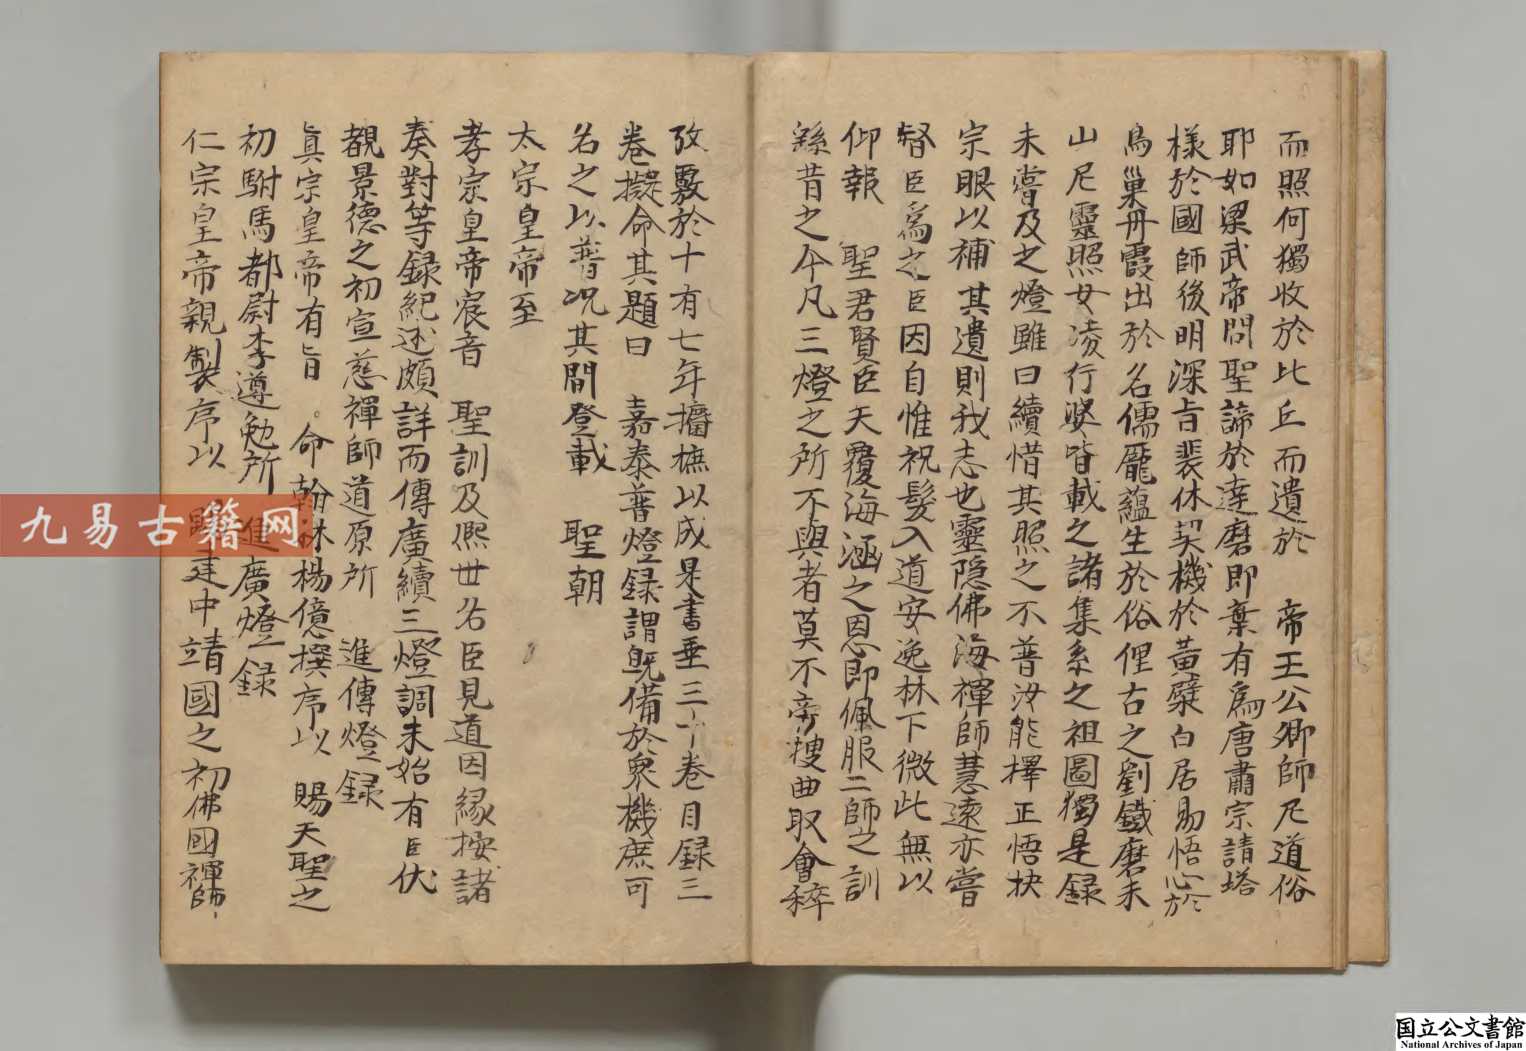 而照何獨收於比丘而遺於　帝王公卿師尼道俗
耶如梁武帝問聖諦於達磨即葉有為唐肅宗請塔
樣於國師後明深旨裴休契機於黃檗白居易悟心於
鳥巢丹霞出於名儒龐蘊生於俗俚古之劉鐵磨末
山尼靈照女凌行婆皆載之諸集系之祖圖獨是錄
未嘗及之燈雖曰續惜其照之不普汝能擇正悟抉
宗眼以補其遺則我志也靈隱佛海禪師慧遠亦嘗
督臣為之臣因自惟祝髮入道安逸林下微此無以
仰報　聖君賢臣天覆海涵之恩即佩服二師之訓
繇昔之今凡三燈之所不與者莫不旁搜曲取會稡
攷覈於十有七年攟摭以成是書垂三十卷目録三
卷擬命其題曰　嘉泰普燈録謂既備於眾機庶可
名之以普況其間登載　聖朝
太宗皇帝至
孝宗皇帝宸音　聖訓及熈世名臣見道因緣按諸
奏對等録紀述頗詳而傳廣續三燈調未始有臣伏
覩景德之初宣慈禪師道原所　進傳燈録
真宗皇帝有旨。命翰林楊億撰序以　賜天聖之
初駙馬都尉李遵勉所　進廣燈録
仁宗皇帝親製序以　賜建中靖國之初佛國禪師
九易古籍网
国立公文書館
National Archives of Japan